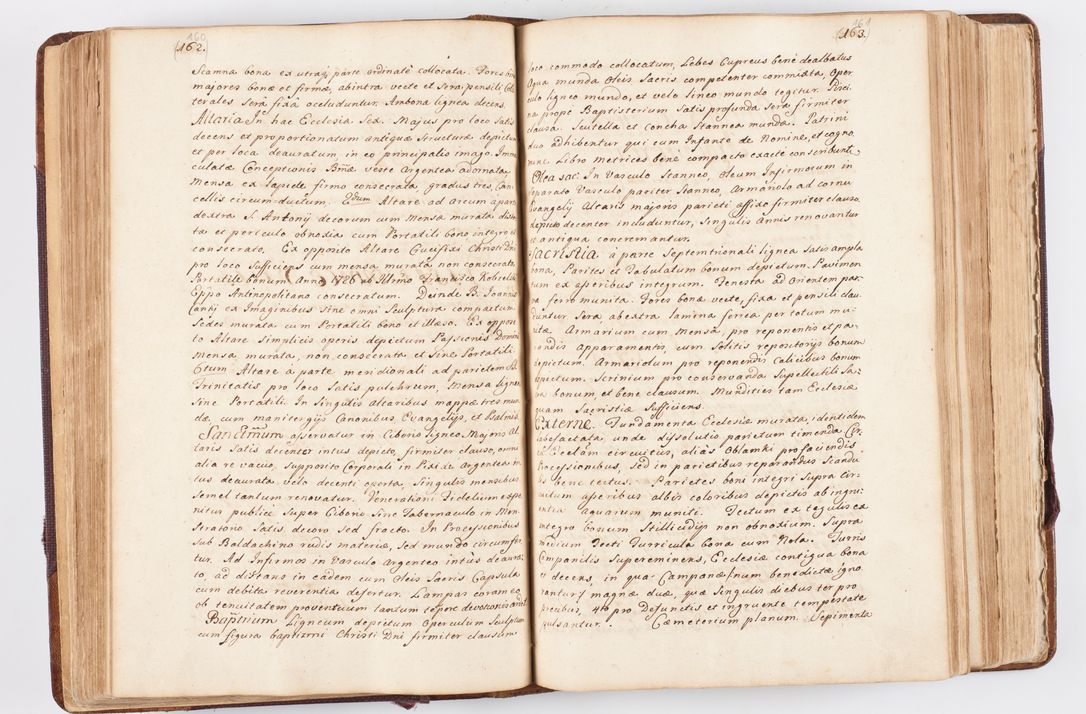 160
(162.
Scamna bona ex utraq parte ordinaté collocata. Fores
majores bonæ et firmæ, abintra vecte et Sera pensili
terales Sera fixa occluduntur. Ambona lignea decens.
Altaria In hac Ecclesia Sex. Majus pro loco Satis
decens et proportionatum antiquæ Structuræ depictum
et per loca deauratum, in eo principalis imago Imma
culatæ Conceptionis Bmæ veste Argentea adornata,
Mensa ex lapide firmo consecrata, gradus tres, Can
cellis circumductum. 2dum Altare ad Arcum à parte
dextra S. Antonij decorum cum Mensa murata
ta et periculo obnoxia cum Portatili bono integro et
consecrato. Ex opposito Altare Crucifixi Christi Dni
pro loco Sufficiens cum mensa murata non consecrata
Portatili bonum Anno 1726 ab Illmo Francisco Kobielski
Eppo Antinopolitano consecratum. Deinde B. Joannis
Cantij ex Imaginibus Sine omni Sculptura compactum
Sedes murata cum Portatili bono et illæso. Ex opposi
to Altare Simplicis operis depictum Passionis Domini
Mensa murata, non consecrata et Sine Portatili.
6tum Altare à parte meridionali ad parietem S.
Trinitatis pro loco Satis pulchrum, Mensa lignea
Sine Portatili. In Singulis altaribus mappæ tres mun
dæ, cum manitergijs Canonibus Evangelijs, et Psalmis.
Sanctmum asservatur in Ciborio ligneo Majoris Al
taris Satis decenter intus depicto, firmiter clauso, omni
alia re vacuo, Supposito Corporali in Pixide Argentea in
tus deaurata velo decenti cooperta, Singulis mensibus
Semel tantum renovatur. Venerationi Fidelium expo
nitur publicé Super Ciborio Sine Tabernaculo in Mon
stratorio Satis decoro sed fracto. In Processionibus
Sub Baldachino rudis materiæ, Sed mundo circumfer
tur. Ad Infirmos in Vasculo Argenteo intus deaura
to, ac distans in eadem cum Oleis Sacris Capsula
cum debita reverentia defertur. Lampas coram eo
ob tenuitatem proventuum tantum tepore devotionis ardet
Baptmum Ligneum depictum Operculum Sculptum
cum figura baptizmi Christi Dni firmiter clausum
161
(163.
loco commodo collocatum, Lebes Cupreus bené dealbatus
Aqua munda Oleis Sacris competenter commixta, Oper
culo ligneo mundo, et velo lineo mundo tegitur. Pisci
na prope Baptisterium Satis profunda Sera firmiter
clausa. Scutella et Concha Stannea munda. Patrini
duo adhibentur qui cum Infante de Nomine, et cogno
mine Libro Metrices bené compacto exacté conscribuntur
Olea sac: In Vasculo Stanneo, Oleum Infirmorum in
Separato Vasculo pariter Stanneo, Armariolo ad cornu
Evangelij Altaris majoris parieti affixo firmiter clauso,
depicto decenter includuntur, Singulis Annis renovantur
et antiqua concremantur.
Sacristia à parte Septemtrionali lignea Satis ampla
bona, Parites et Tabulatum bonum depictum. Pavimen
tum ex asseribus integrum. Fenestra ad Orientem par
va ferro munita. Fores bonæ vecte, fixa et pensili clau
duntur Sera abextra lamina ferrea per totum mu
nitæ Armarium cum Mensa, pro reponentis et pa
randis Apparamentis, cum Solitis repositorijs bonum
depictum. Armariolum pro reponendis calicibus bonum
depictum. Scrinium pro conservanda Supellectili Sa
cra bonum, et bene clausum. Mundities tam Ecclesiæ
quam Sacristiæ Sufficiens.
Externé Fundamenta Ecclesiæ murata, identidem
labefactata, unde dissolutio parietum timenda
Ecclesiam circuitus, aliàs Oblamki pro faciendis
Processionibus, Sed in parietibus reparandus Scandu
lis bene tectus. Parietes boni integri Supra Cir
cuitum asseribus albis coloribus depictis ab ingru
entia aquarum muniti. Tectum ex tegulis ex
integro bonum Stillicidijs non obnoxium. Supra
medium Tecti Turricula bona cum Nola. Turris
Companilis Supereminens, Ecclesiæ contigua bona
et decens, in qua Campanæ /num benedictæ igno
rantur/ magnæ duæ, quæ Singulis diebus ter pro
precibus, 4to pro Defunctis et ingruente tempestate
pulsantur. Cæmeterium planum. Sepimenta